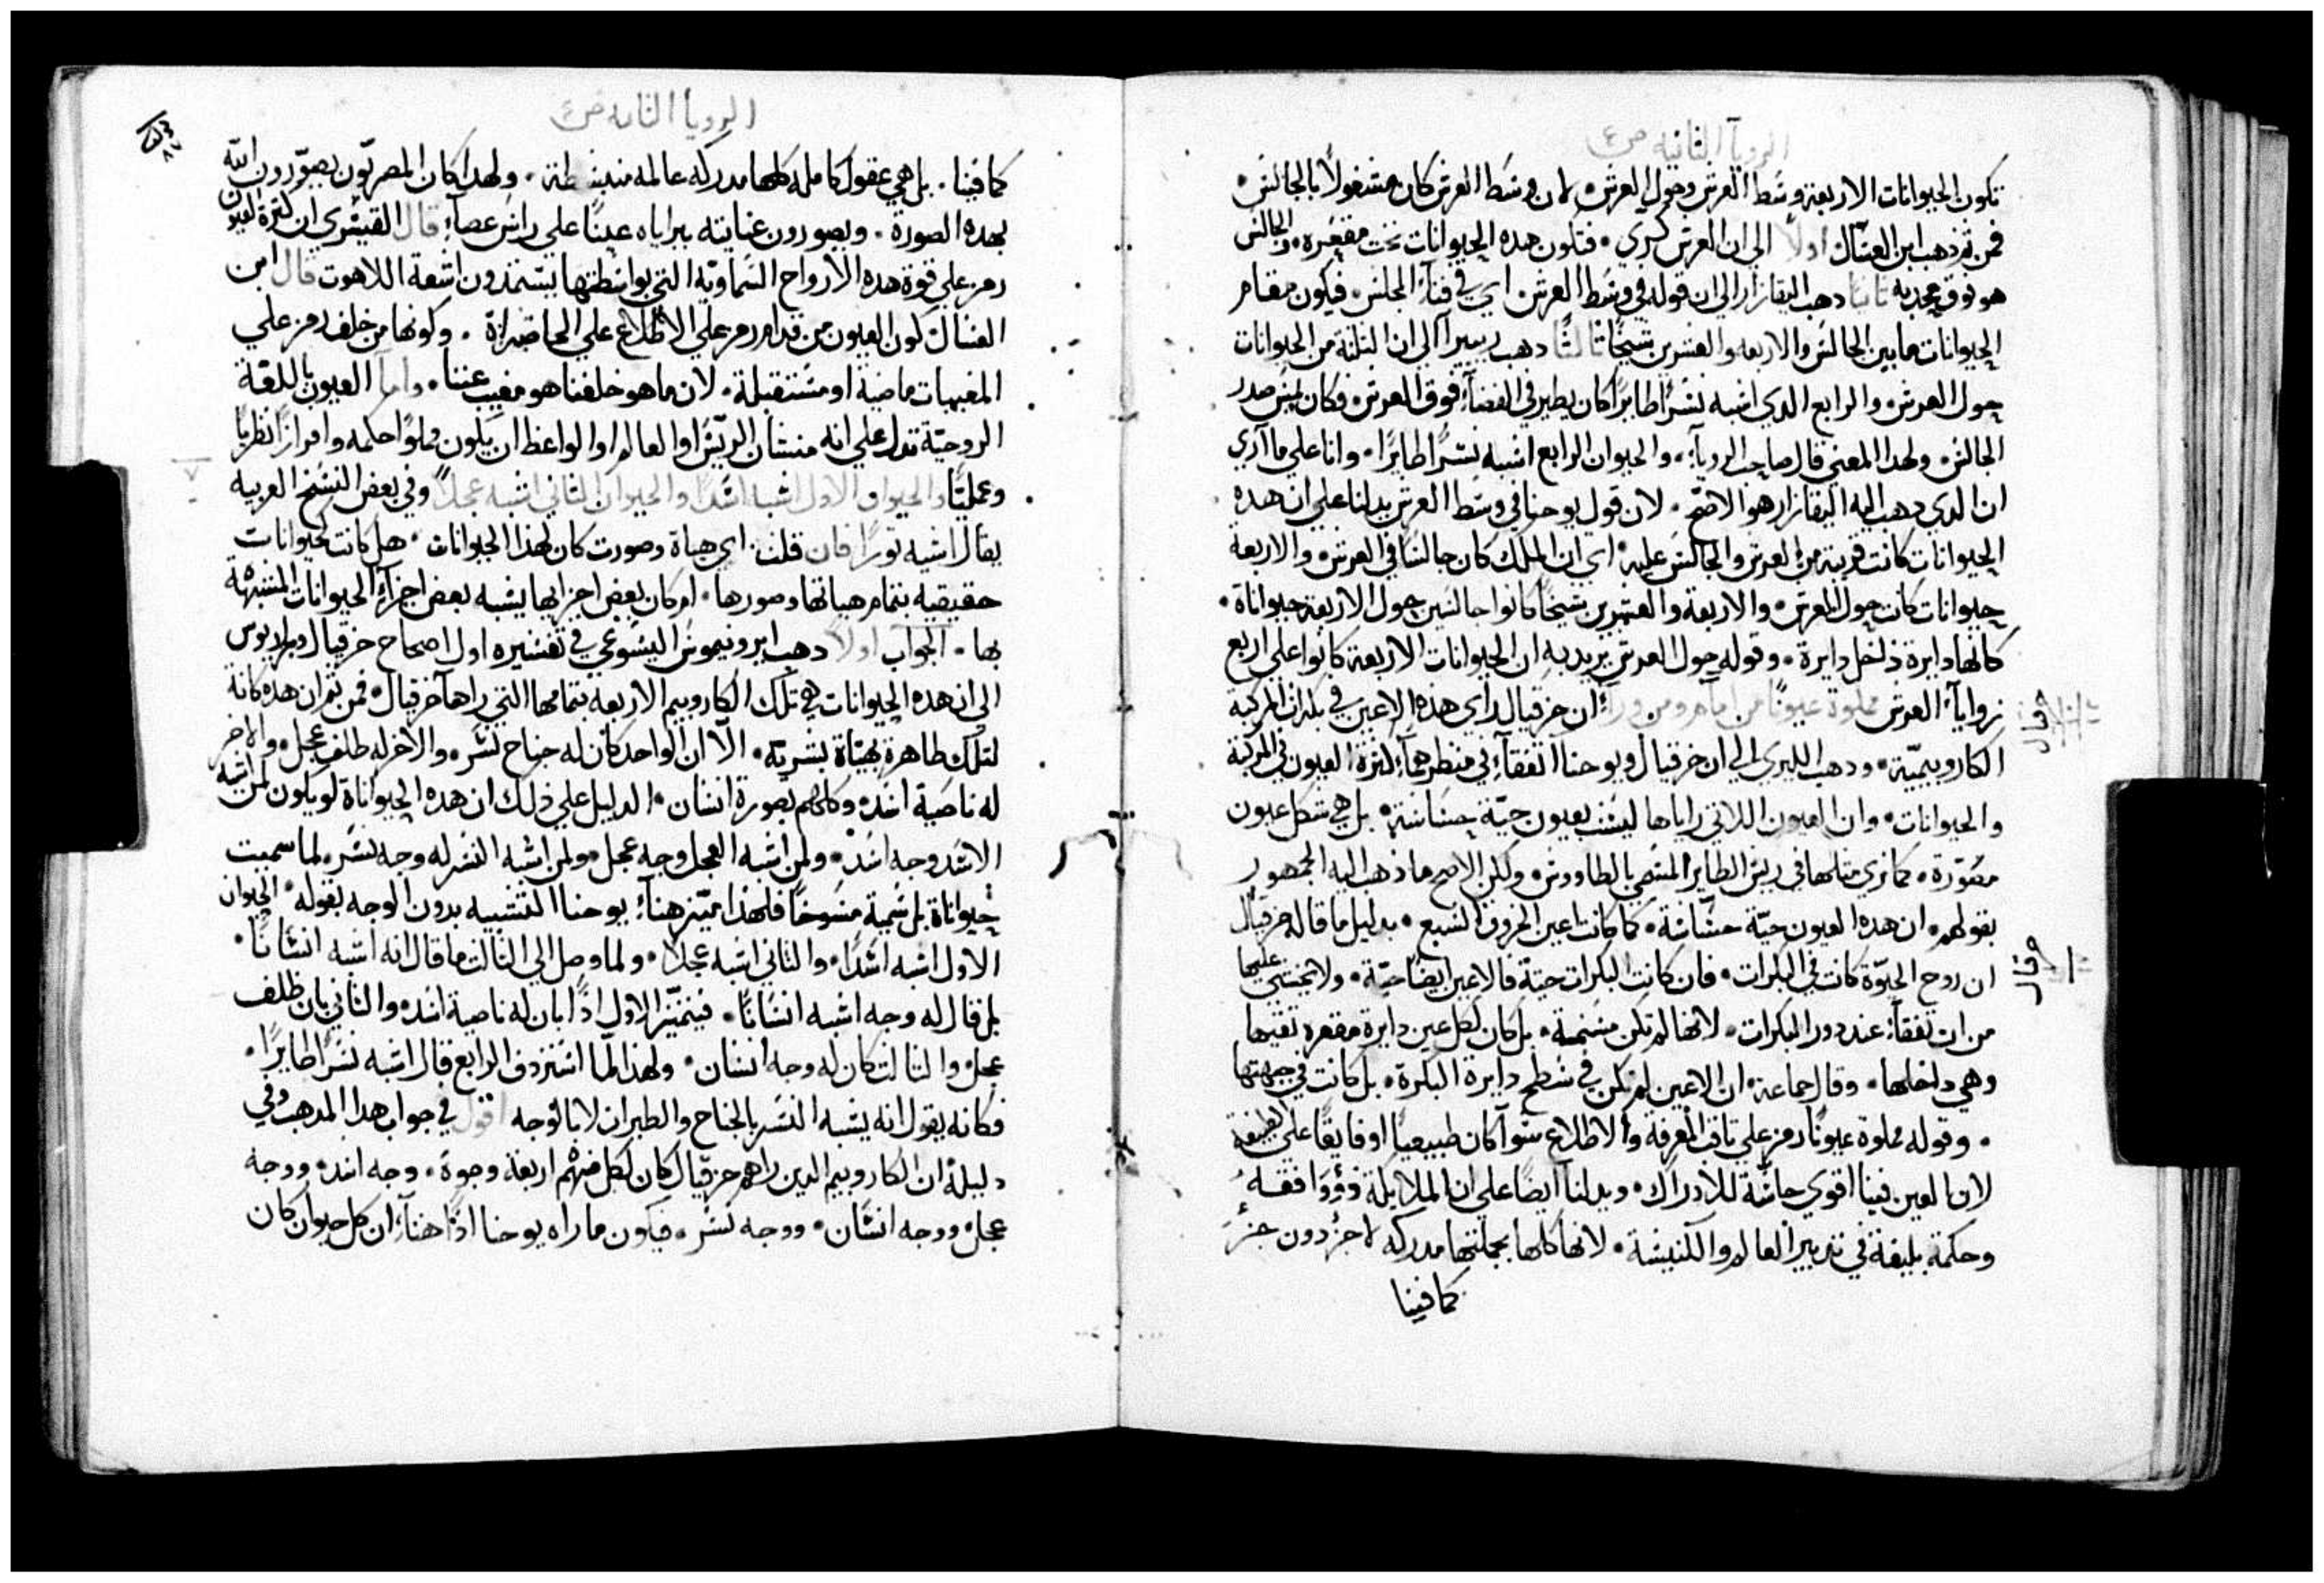 الرويآ الثانيه ص٤
تكون الحيوانات الاربعة وسَط العرش وحول العرش، لان وسَط العرش كان مشغولاً بالجالسَ.
فمن ثم ذهب ابن العسَّال اولاً الي ان العرش كري. فتكون هده الحيوانات تحت مقعره. والجالسَ
هو فوق محدبه ثانياً دهب اليقازار الي ان قوله في وسَط العرش اي في فنآء المجلسَ. فيكون مقام
الحيوانات ما بين الجالسَ والاربعه والعشرين شيخًا ثالثًا دهب ريبيرآ الي ان الثلثة من الحيوانات
حول العرش. والرابع الدي اشبه نسَرًا طايرًا كان يطير في الفضآء فوق العرش. فكان يمسَ صدر
الجالسَ. ولهدا المعني قال صاحب الرويآ. والحيوان الرابع اشبه نسَرًا طايرًا. وانا علي ما آري
ان الدي دهب اليه اليقازار هو الاصحّ. لان قول يوحنا في وسَط العرش يدلنا علي ان هده
الحيوانات كانت قريبة من العرش والجالسَ عليه. اي ان الملك كان جالسًَا في العرش والاربعة
حيوانات كانت حول العرش. والاربعة والعشرين شيخًا كانوا جالسَين حول الاربعة حيواناة.
كانها دايرة داخل دايرة. وقوله حول العرش يريد به ان الحيوانات الاربعة كانوا علي اربع
زوايآء العرش مملوة عيونًا من امآم ومن ورآء ان حزقيال راي هده الاعين في بكرات المركبة
الكاروبيميّة. ودهب الليري الي ان حزقيال ويوحنا اتفقآء في منظرهمآ. لكثرة العيون في المركبة
والحيوانات. وان العيون اللاتي راياها ليسَت بعيون حيّة حسَاسَة. بل هي شكل عيون
مصَوّرة. كما نري مثلها في ريش الطاير المسَمي بالطاووسَ. ولكن الاصح ما ذهب اليه الجمهور
بقولهم. ان هده العيون حيّة حسَّاسَة. كما كانت اعين الخروف السَبع. بدليل ما قاله حزقيال
ان روح الحيوة كانت في البكرات. فان كانت البكرات حيّة فالاعين ايضًا حيّة. ولا يختشي عليها
من ان تفقآء عند دور البكرات. لانها لم تكن مسَنمة. بل كان لكل عين دايرة مقعره تقيها
وهي داخلها. وقال جماعة. ان الاعين لم تكن في سَطح دايرة البكرة. بل كانت في جبهتها
. وقوله مملوة عيونًا رمز علي المعرفة والاطلاع سَوآ كان طبيعيًا او فايقًا علي الطبيعة
لان العين فينا اقوي حاسَّة للادراك. ويدلنا ايضًا علي ان الملايكة
وحكمة بليغة في تدبير العالم والكنيسَة. لانها كلها بجملتها مدركه لا جزء دون جزء
كما فينا
حزقيال
حزقيال
الرويآ الثانيه ص٤
٨٧
كما فينا. بل هي عقول كامله كلها مدركه عالمه. ولهدا كان المصريّون يصوّرون اللّه
بهده الصورة. ويصورون عنايته ببراياه عينًا علي راسَ عصآء قال القيسَري ان كثرة العيون
رمز علي قوة هده الارواح السَماويّة التي بواسَطتها يسَتمدون اشعة اللاهوت قال ابن
العسَال كون العيون من قدام رمز علي الاطلاع علي الحاضراة. وكونها من خلف رمز علي
المغيبات ماضية او مسَتقبلة. لان ما هو خلفنا هو مغيب عننا. وامآ العيون باللغة
الروحيّة تدل علي انه من شان الريّسَ او العالم او الواعظ ان يكون مملوًا حكمه وافرازًا نظريًا
وعمليًّا والحيوان الاول اشبه اسَدًا والحيوان الثاني اشبه عجلاً وفي بعض النسَخ العربيه
يقال اشبه ثورًا فان قلت اي هياة وصورت كان لهذا الحيوانات. هل كانت حيوانات
حقيقيه بتمام هياتها وصورها. ام كان بعض اجزايها يشبه بعض اجزآء الحيوانات المشبهة
بها. الجوآب اولاً دهب ايرونيموسَ اليسَوعي في تفسَيره اول اصحاح حزقيال
الي ان هده الحيوانات هي تلك الكاروبيم الاربعة بتمامها التي راهآ حزقيال. فمن ثم ان هده كانة
لتلك ظاهرة بهيّاة بشريّة. الاّ ان الواحد كان له جناح نسَر. والاخر له ظلف عجل. والاخر
له ناصَية اسَد. وكلهم بصورة انسَان. الدليل علي ذلك ان هده الحيواناة لو يكون لمن اشبه
الاسَد وجه اسَد. ولمن اشبه العجل وجه عجل. ولمن اشبه النسَر له وجه نسَر. لما سميت
حيواناة بل سَمية مسَوخًا فلهذا ميّز هنآء يوحنا التشبيه بدون الوجه بقوله. الحيوان
الاول اشبه اسَدًا. والثاني اشبه عجلاً. ولما وصل الي الثالت ما قال انه اشبه انسَانًا.
بل قال له وجه اشبه انسَانًا. فيتميّز الاول اذًا بان له ناصية اسَد. والثاني بان ظلف
عجل. والثالت كان له وجه انسَان. ولهذا لمّا اسَتردف الرابع قال اشبه نسَرًا طايرًا.
فكانه يقول انه يشبه النسَر بالجناح والطيران لا بالوجه اقول في جواب هدا المدهب وفي
دليله ان الكاروبيم الدين راهم حزقيال كان لكل منهم اربعة وجوة. وجه اسَد. ووجه
عجل. ووجه انسَان. ووجه نسَر. فيكون ما راه يوحنا اذًا هنآء ان كل حيوان كان
٧